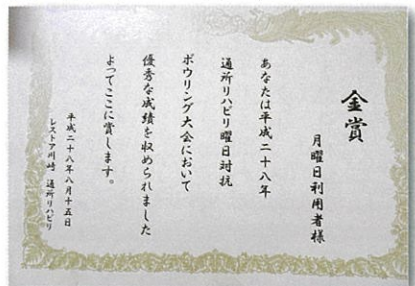 金賞
月曜日利用者様
あなたは平成二十八年
通所リハビリ曜日対抗
ボウリング大会において
優秀な成績を収められました
よってここに賞します。
平成二十八年八月十五日
レストア川崎 通所リハビリ